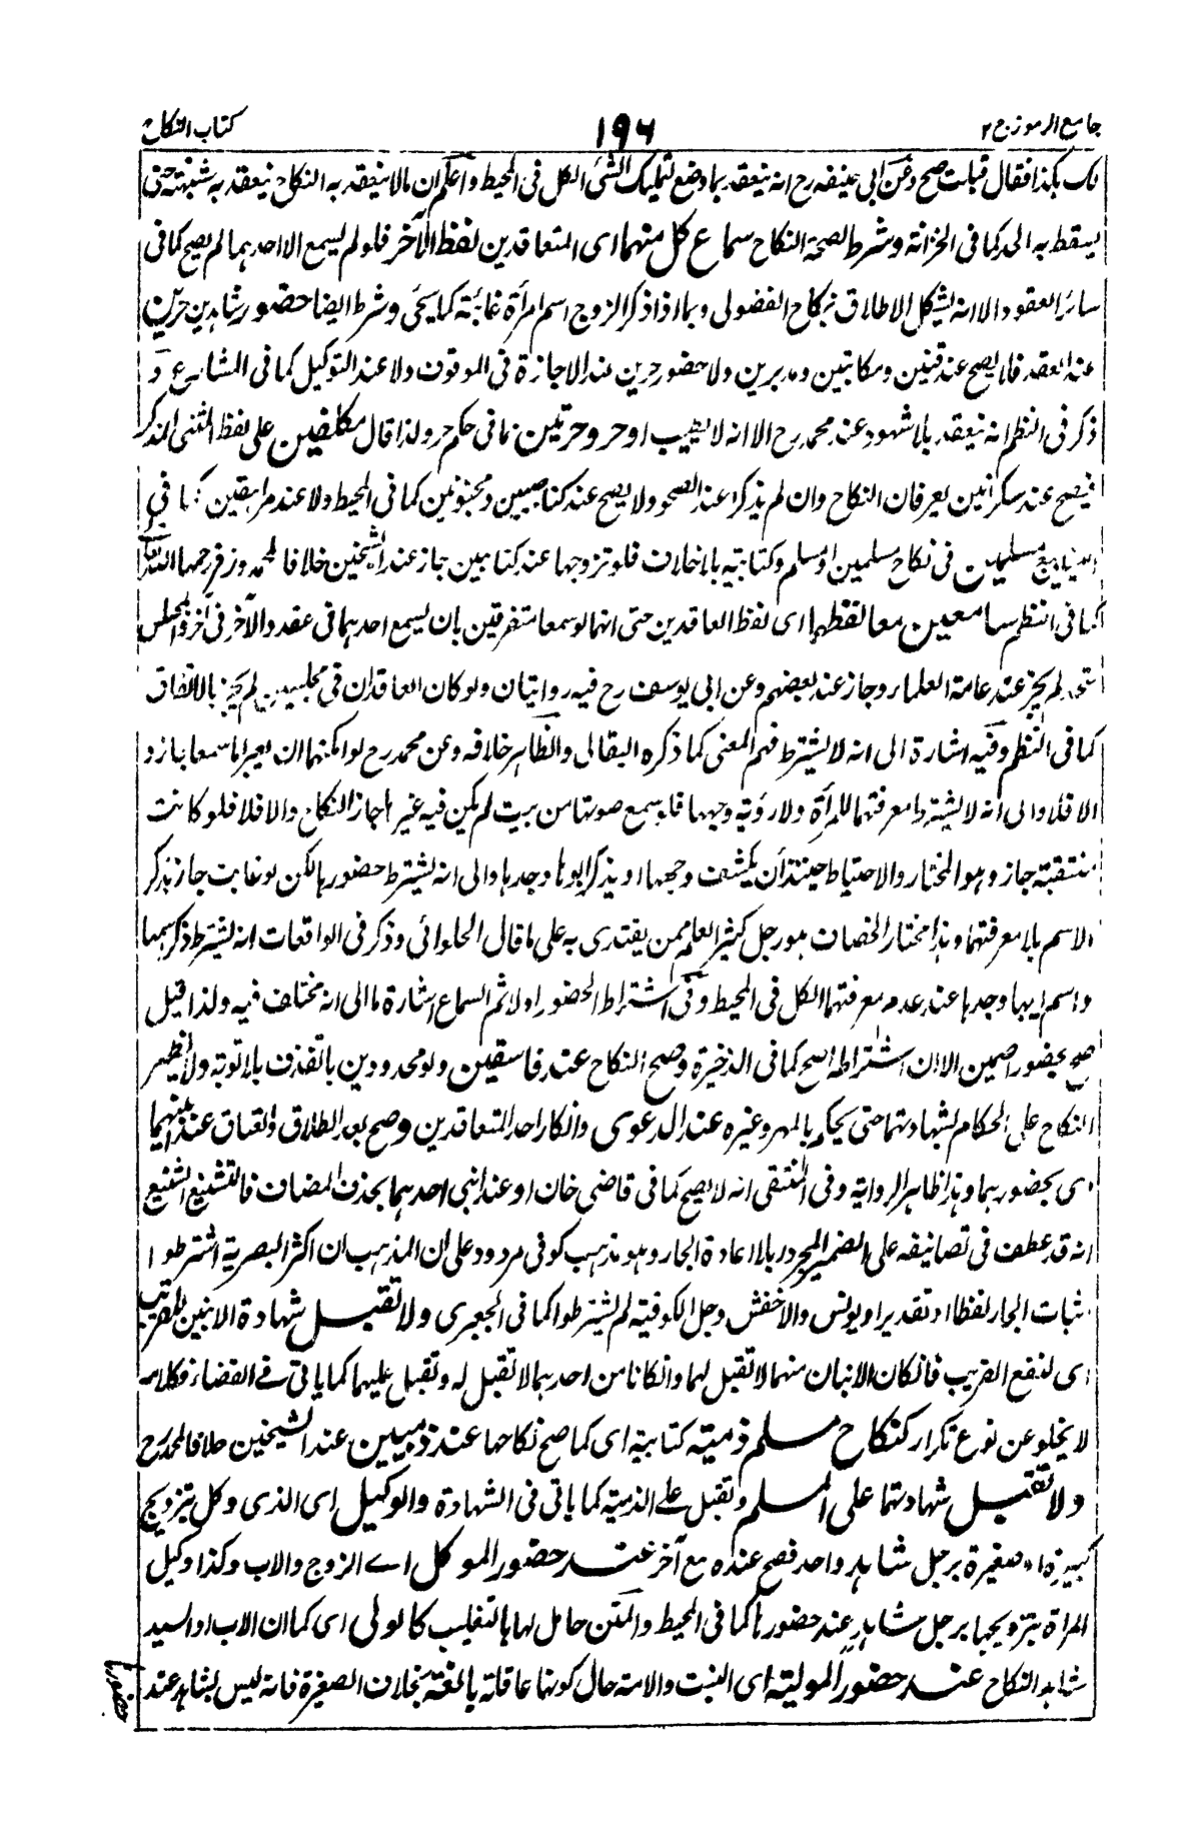 جامع الرموز ج ٢
١٩٦
كتاب النكاح
بكذا فقال قبلت صح وعن ابى حنيفة رح انه ينعقد بما وضع لتمليك الشئ الكل فى المحيط واعلم ان مالا ينعقد به النكاح ينعقد به شبهته حتى
يسقط به الحد كما فى الخزانة وشرط لصحة النكاح سماع كل منهما اى المتعاقدين لفظ الآخر فلو لم يسمع الا احدهما لم يصح كما فى
سائر العقود الا انه يشكل الاطلاق بنكاح الفضولى وبما اذا ذكر الزوج اسم امرأة غائبة كما يجئ وشرط ايضا حضور شاهدين حرين
عند العقد فلا يصح عند قنين ومكاتبين ومدبرين ولا حضور حرين عند الاجازة فى الموقوف ولا عند التوكيل كما فى المشارع و
ذكر فى النظم انه ينعقد بلا شهود عند محمد رح الا انه لا يطيب او حر وحرتين فانها فى حكم حر ولذا قال مكلفين على لفظ المثنى المذكر
فيصح عند سكرانين يعرفان النكاح وان لم يذكرا عند الصحو ولا يصح عندنا كصبيين ومجنونين كما فى المحيط ولا عند مراهقين كما فى
الينابيع مسلمين فى نكاح مسلمين او مسلم وكتابية بلا خلاف فلو تزوجها عند كتابيين جاز عند الشيخين خلافا لمحمد وزفر رحمهما الله تعالى
كما فى النظم سامعين معا لفظهما اى لفظ العاقدين حتى انهما لو سمعا متفرقين بان يسمع احدهما فى عقد والآخر فى آخر والمجلس
متحد لم يجز عند عامة العلماء وجاز عند بعضهم وعن ابى يوسف رح فيه روايتان ولو كان العاقدان فى مجلسين لم يجز بالاتفاق
كما فى النظم وفيه اشارة الى انه لا يشترط فهم المعنى كما ذكره البقالى والظاهر خلافه وعن محمد رح لو امكنهما ان يعبرا ما سمعا جاز و
الا فلا والى انه لا يشترط معرفتهما للمرأة ولا رؤية وجهها فلو سمع صوتها من بيت لم يكن فيه غيرها جاز النكاح والا فلا فلو كانت
منتقبة جاز وهو المختار والاحتياط حينئذ ان يكشف وجهها او يذكر ابوها وجدها والى انه يشترط حضورها لكن لو غابت جاز بذكر
الاسم بلا معرفتهما وهذا مختار الخصاف هو رجل كثير العلم ممن يقتدى به على ما قال الحلوائى وذكر فى الواقعات انه يشترط ذكر اسمها
واسم ابيها وجدها عند عدم معرفتهما الكل فى المحيط وفى اشتراط الحضور اولا ثم السماع اشارة ما الى انه مختلف فيه ولذا قيل
صح بحضور اصمين الا ان اشتراطه اصح كما فى الذخيرة وصح النكاح عند فاسقين ولو محدودين بالقذف بلا توبة ولا يظهر
النكاح على الحكام بشهادتهما حتى يحكم بالمهر وغيره عند الدعوى وانكار احد المتعاقدين وصح بعد الطلاق والعتاق عند ابنيهما
اى بحضورهما وهذا ظاهر الرواية وفى المنتقى انه لا يصح كما فى قاضى خان او عند ابنى احدهما بحذف المضاف فالتشنيع الشنيع
انه قد عطف فى تصانيفه على الضمير المجرور بلا اعادة الجار وهو مذهب كوفى مردود على ان المذهب ان اكثر البصرية اشترطوا ا
ثبات الجار لفظا او تقديرا ويونس والاخفش وجل الكوفية لم يشترطوا كما فى الجعبرى ولا تقبل شهادة الابنين للقريب
اى لنفع القريب فان كان الابنان منهما لا تقبل لهما وان كانا من احدهما لا تقبل له وتقبل عليهما كما ياتى فى القضاء فكلامه
لا يخلو عن نوع تكرار كنكاح مسلم ذمية كتابية اى كما صح نكاحها عند ذميين عند الشيخين خلافا لمحمد رح
ولا تقبل شهادتهما على المسلم وتقبل على الذمية كما ياتى فى الشهادة والوكيل اى الذى وكل بتزويج
كبيرة او صغيرة برجل شاهد واحد فصح عنده مع آخر عند حضور الموكل اى الزوج والاب وكذا وكيل
المرأة بتزويجها برجل شاهد عند حضورها كما فى المحيط والمتن حامل لها بالتغليب كالولى اى كما ان الاب او السيد
شاهد النكاح عند حضور المولية اى البنت والامة حال كونها عاقلة بالغة بخلاف الصغيرة فانه ليس بشاهد عند
حضورها